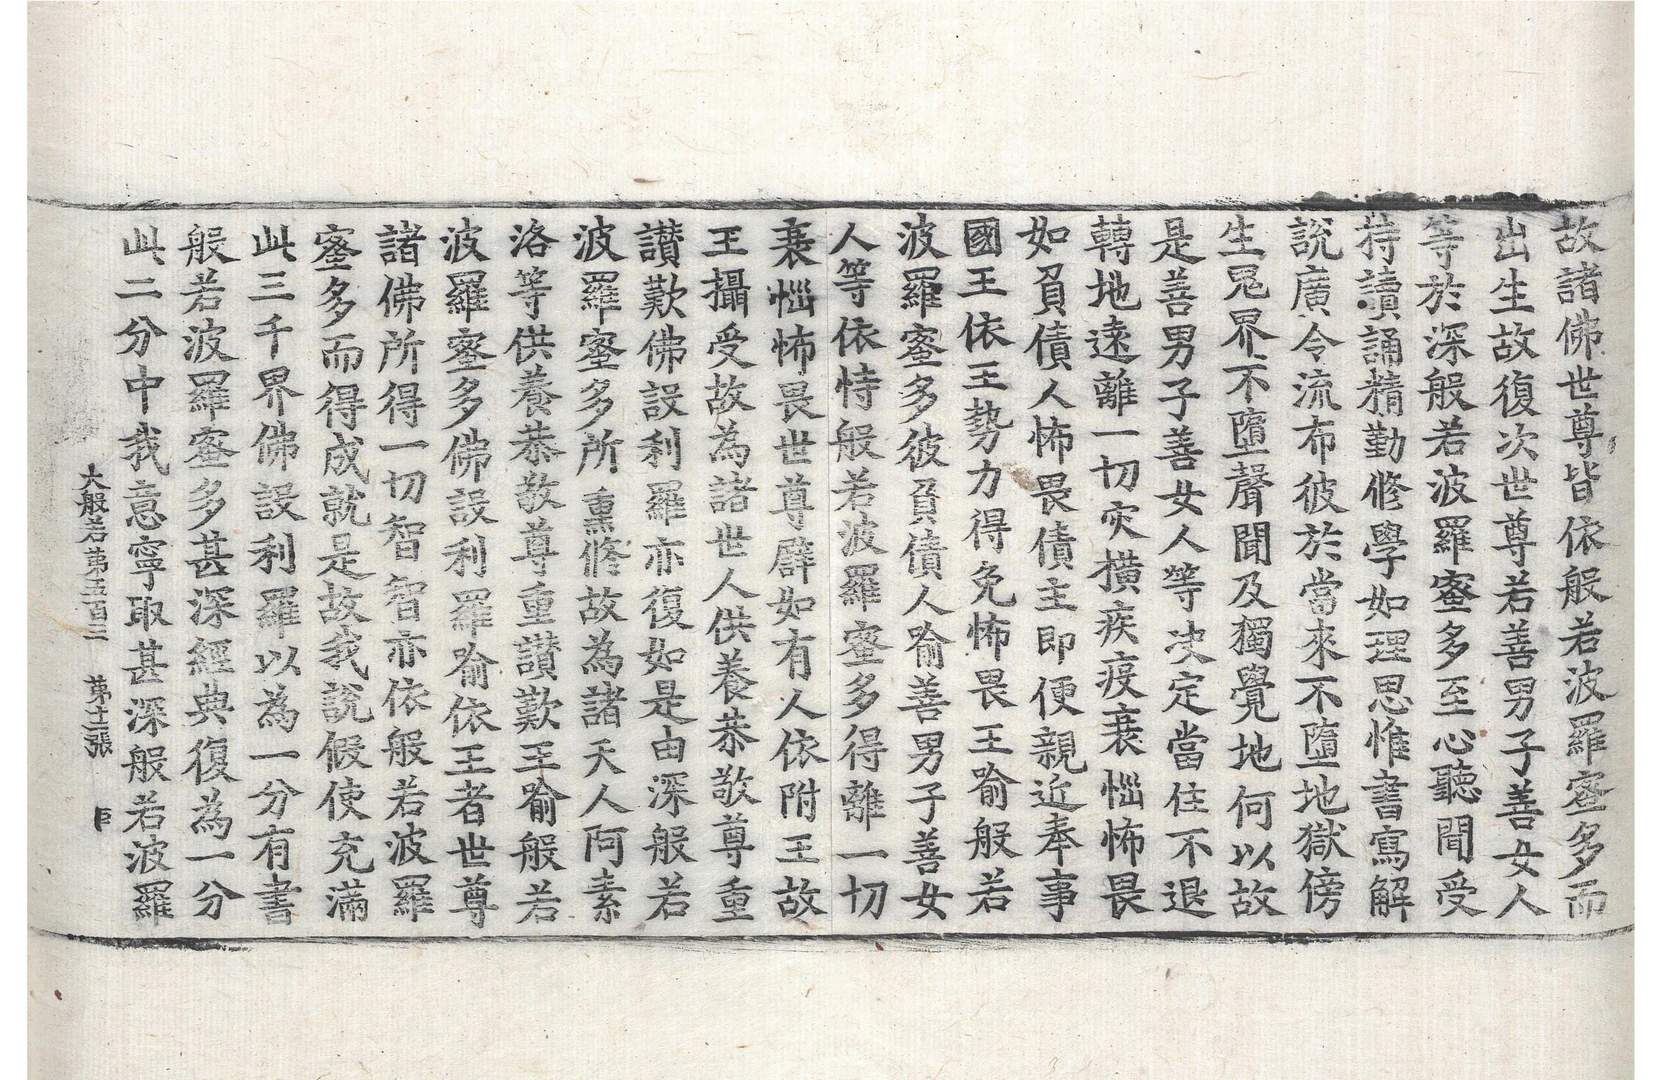 故諸佛世尊皆依般若波羅蜜多而
出生故復次世尊若善男子善女人
等於深般若波羅蜜多至心聽聞受
持讀誦精勤修學如理思惟書寫解
說廣令流布彼於當來不墮地獄傍
生鬼界不墮聲聞及獨覺地何以故
是善男子善女人等決定當住不退
轉地遠離一切灾橫疾疫衰惱怖畏
如負債人怖畏債主即便親近奉事
國王依王勢力得免怖畏王喻般若
波羅蜜多彼負債人喻善男子善女
人等依恃般若波羅蜜多得離一切
衰惱怖畏世尊譬如有人依附王故
王攝受故為諸世人供養恭敬尊重
讚歎佛設利羅亦復如是由深般若
波羅蜜多所熏修故為諸天人阿素
洛等供養恭敬尊重讚歎王喻般若
波羅蜜多佛設利羅喻依王者世尊
諸佛所得一切智智亦依般若波羅
蜜多而得成就是故我說假使充滿
此三千界佛設利羅以為一分有書
般若波羅蜜多甚深經典復為一分
此二分中我意寧取甚深般若波羅
大般若第五百三 第十三張 臣